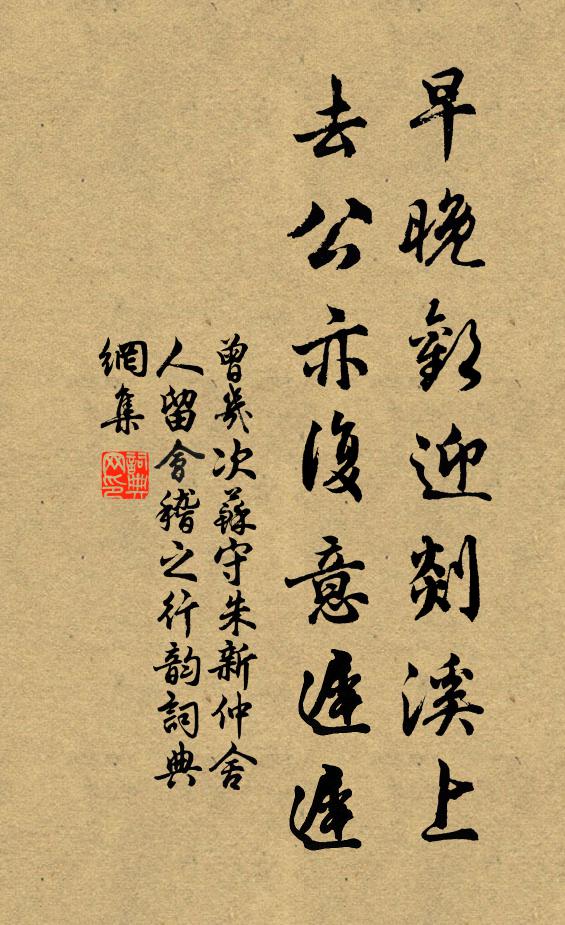 早晚歡迎剡溪上
去公亦復意遲遲
曾幾次蘇守朱新仲舍
人留會稽之行韵詞典
網集
詞典網印